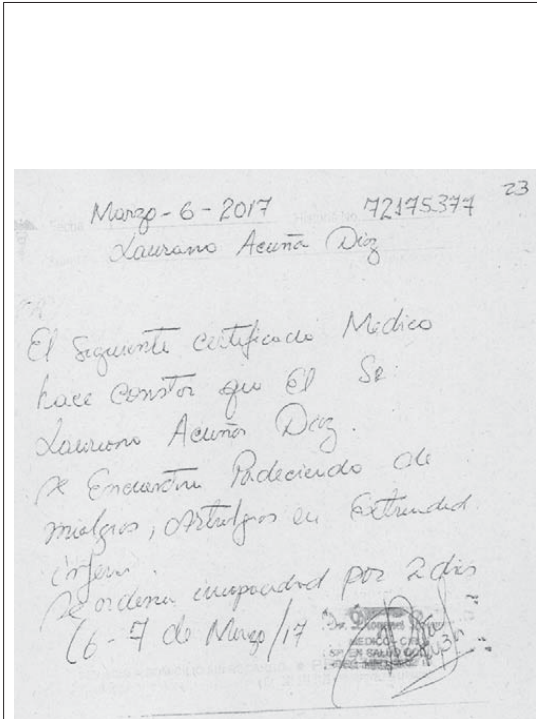 23
Marzo - 6 - 2017 72175377
Laureano Acuña Diaz
El Siguiente certificado Medico
hace constar que El Sr.
Laureano Acuña Diaz.
se Encuentra Padeciendo de
mialgias, Artralgias en Extremidad
inferior.
se ordena incapacidad por 2 dias
(6 - 7 de Marzo/17
MEDICO - 
EN SALUD